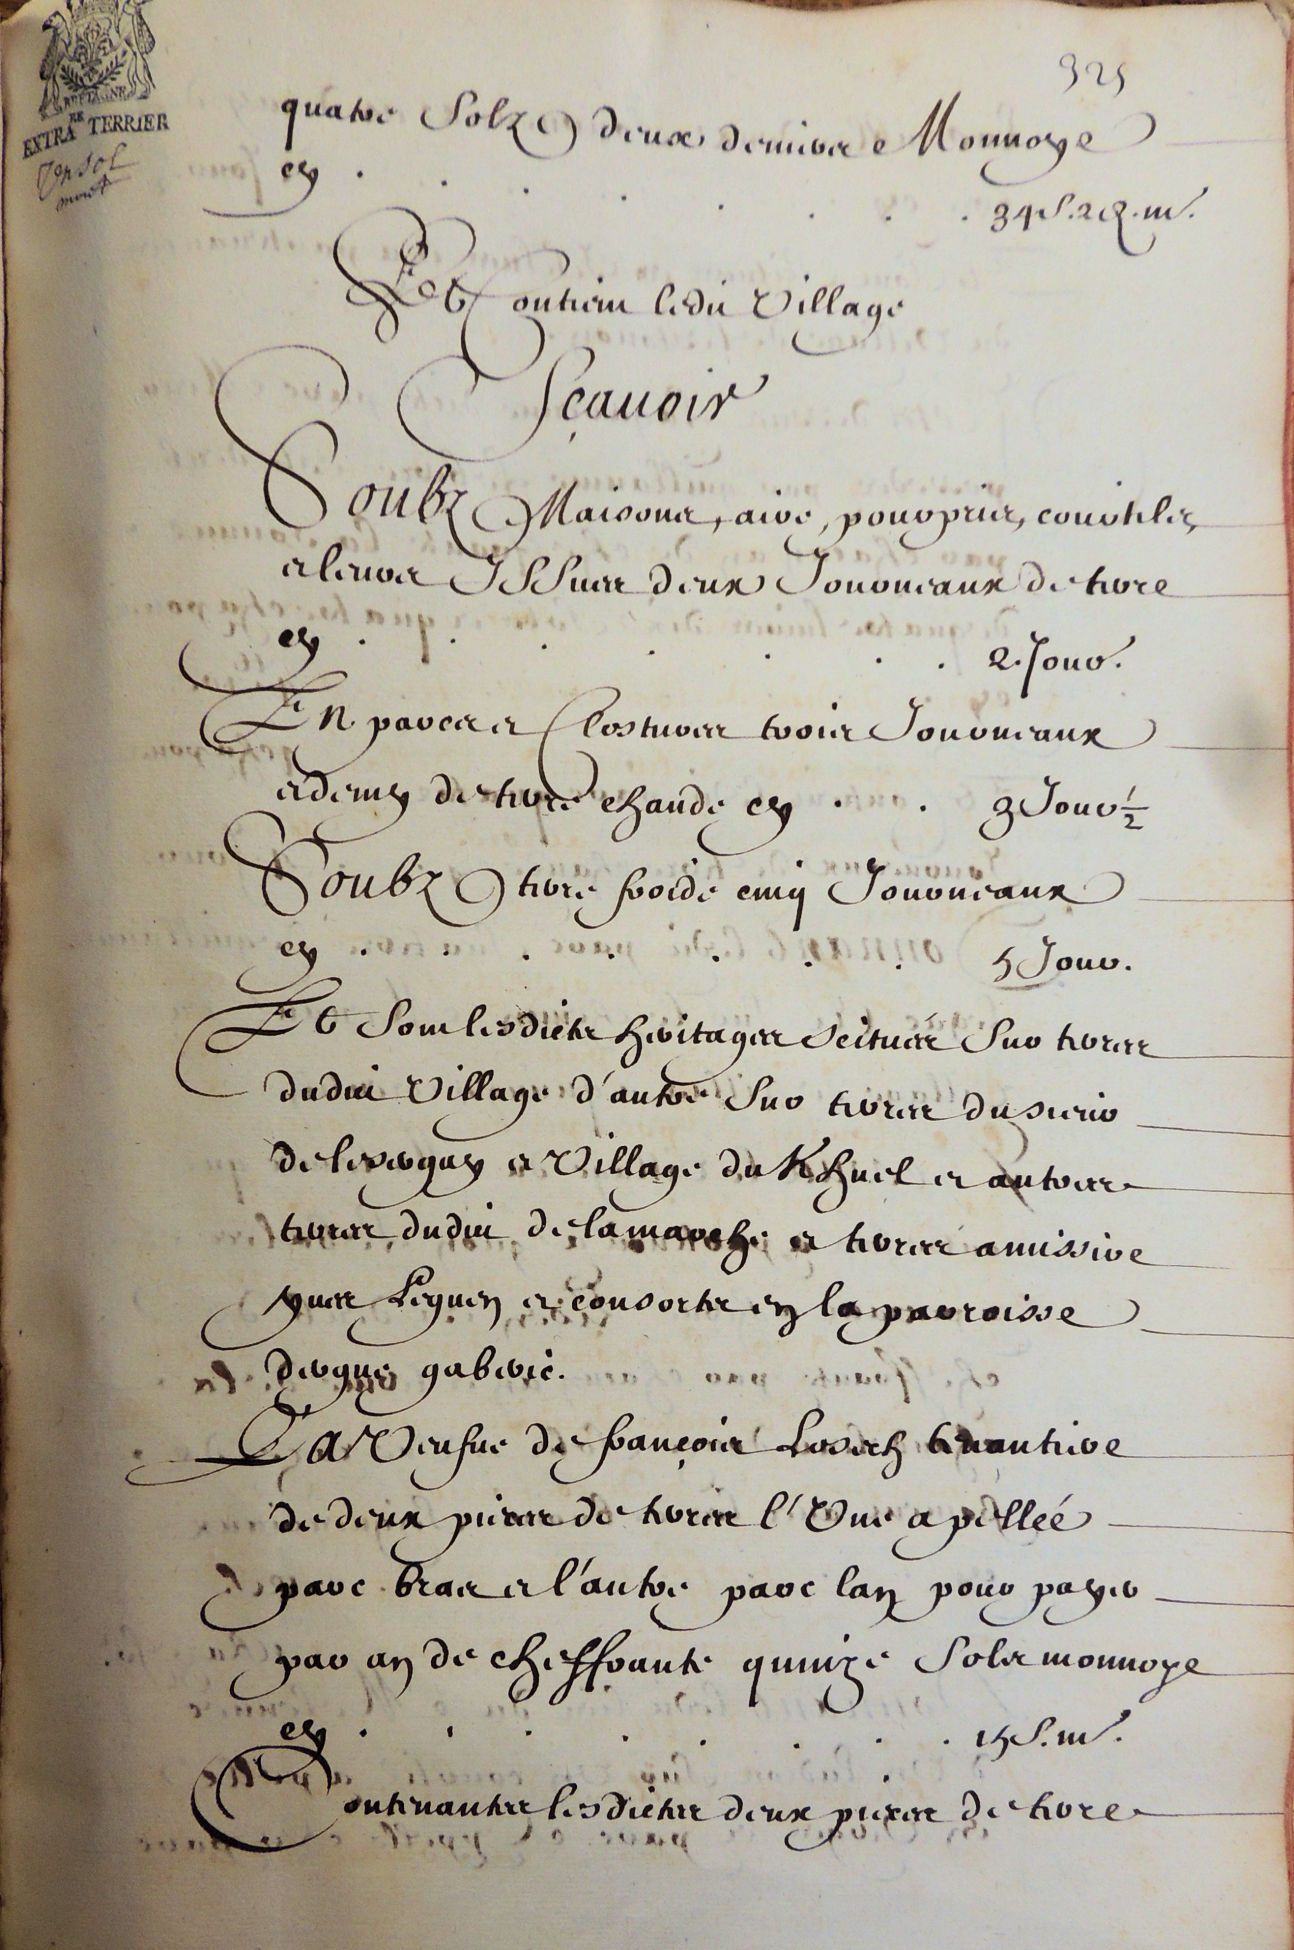 325
BRETAGNE
EXTRA.RE TERRIER
Un sol
quatre Solz deux deniers Monnoye
cy . . . . . . . 34 s. 2 d. m.
Et Contient ledit Village
Sçauoir
Soubz Maisons, aire, pourpris, courtils,
et leurs Issues deux Journeaux de terre
cy . . . . . . . 2. Jour.
En parcs et Clostures trois Journeaux
et demy de terre chaude cy . . 3 Jour 1/2
Soubz terre froide cinq Journeaux
cy . . . . . . . 5 Jour.
Et Sont lesdicts heritages scitués Sur terres
dudit Village d'autre Sur terres du sieur
de lesquy et Village du Khuel et autres
terres dudit de la marche et terres aussi
yues Leguen et consorts en la parroisse
dergue gaberic.
La Veufue de françois Lozach tenantiere
de deux pieces de terres l'Vne apellée
parc bras et l'autre parc lan pour payer
par an de cheffrante quinze Sols monnoye
cy . . . . . . . . 15 S. m.
Contenantes lesdictes deux pieces de terre